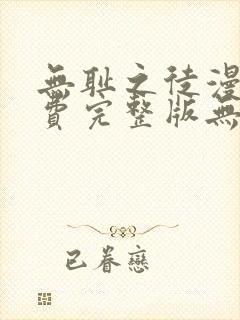 無耻之徒漫
費完整版無
已眷戀